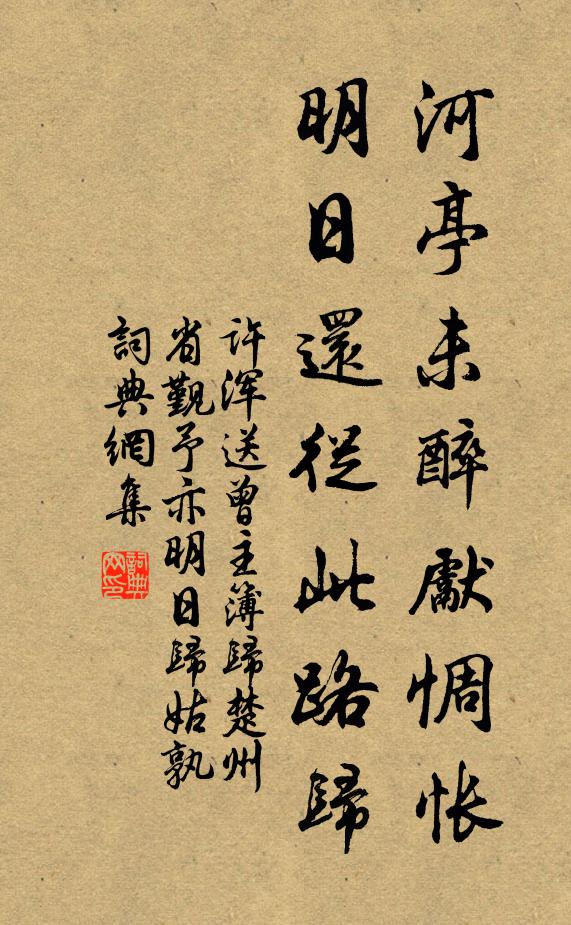 河亭未醉獻惆悵
明日還從此路歸
许浑送曾主簿歸楚州
省覲予亦明日歸姑孰
詞典網集
詞典网印